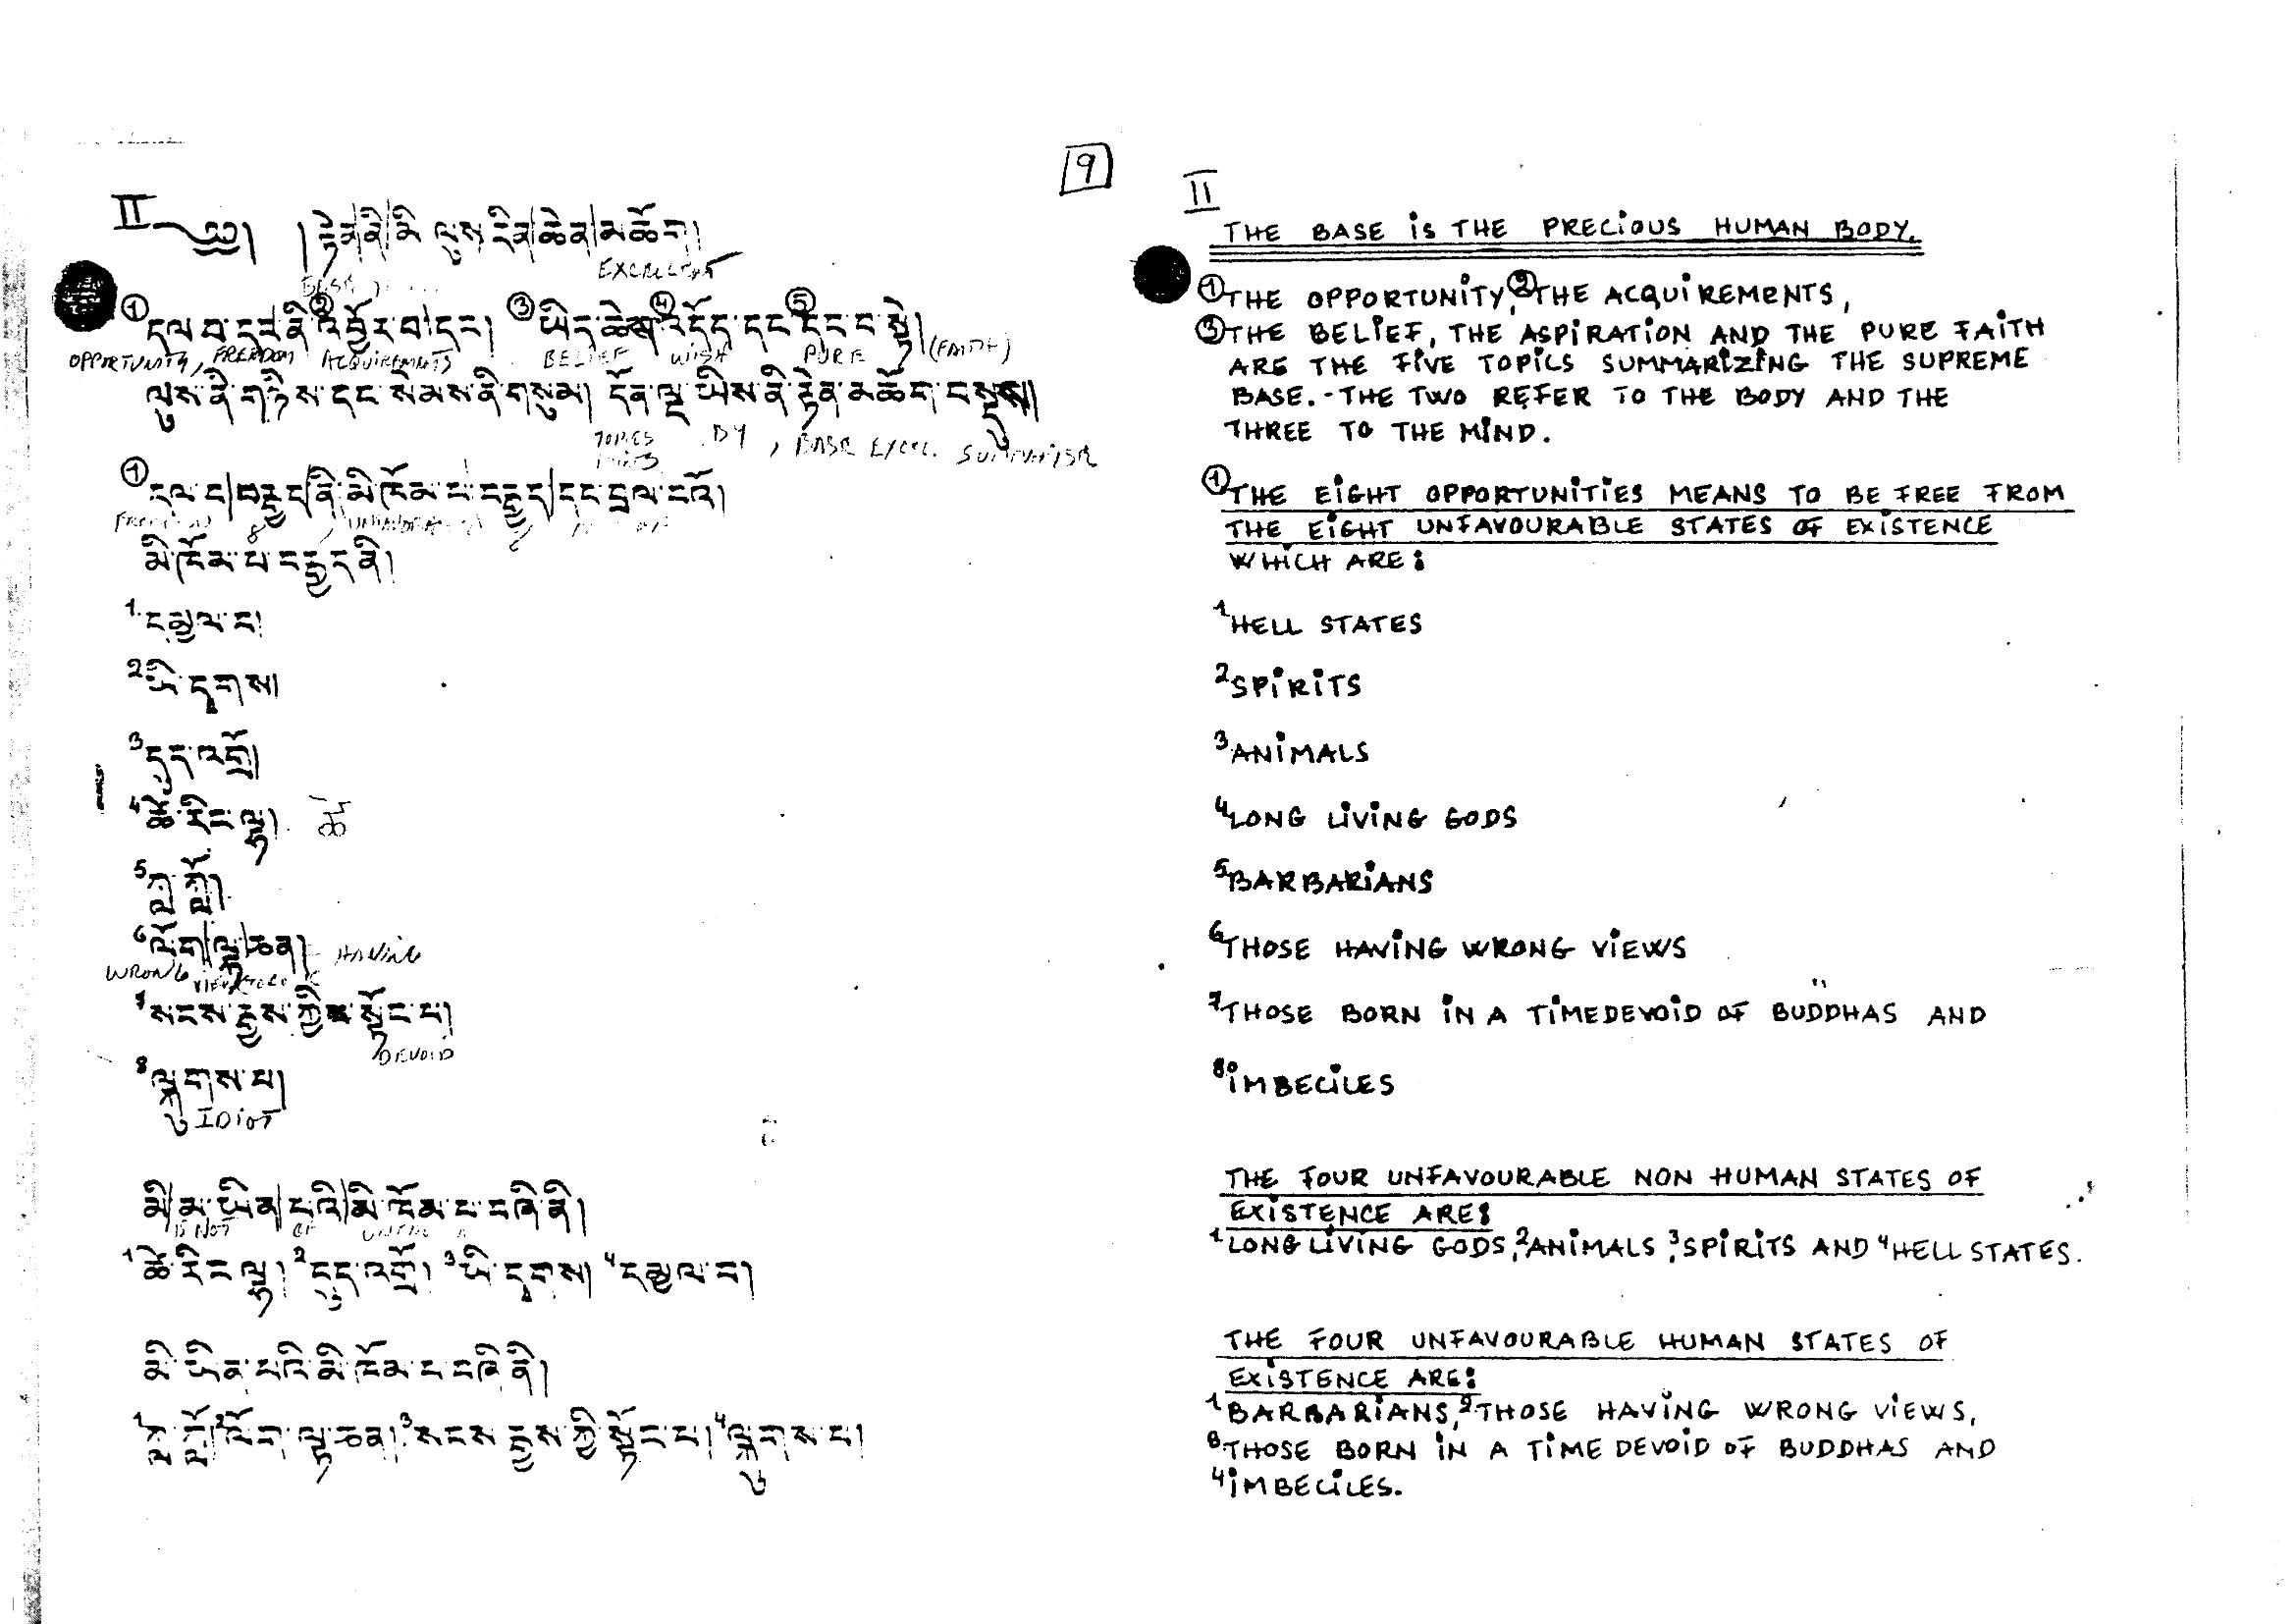 9
II
༄། །རྟེན་ནི་མི་ལུས་རིན་ཆེན་མཆོག།
EXCELLENT
BASE
① དལ་བ་དང་ནི་② འབྱོར་བ་དང། ③ ཡིད་ཆེས་④ འདོད་དང་⑤ དང་བ་སྟེ།
OPPORTUNITY, FREEDOM ACQUIREMENTS BELIEF WISH PURE (FAITH)
ལུས་ནི་གཉིས་དང་སེམས་ནི་གསུམ། དོན་ལྔ་ཡིས་ནི་རྟེན་མཆོག་བསྡུས།
TOPICS BY , BASE EXCEL. SUMMARISE
① དལ་བ་བརྒྱད་ནི་མི་ཁོམ་པ་བརྒྱད་དང་བྲལ་བའོ།
FREEDOM 8
མི་ཁོམ་པ་བརྒྱད་ནི།
1. དམྱལ་བ།
2 ཡི་དྭགས།
3 དུད་འགྲོ།
4 ཚེ་རིང་ལྷ། ཚེ
5 ཀླ་ཀློ།
6 ལོག་ལྟ་ཅན། HAVING
WRONG
7 སངས་རྒྱས་ཀྱིས་སྟོང་པ།
DEVOID
8 ལྐུགས་པ།
IDIOT
མི་མ་ཡིན་པའི་མི་ཁོམ་པ་བཞི་ནི།
IS NOT OF
1 ཚེ་རིང་ལྷ། 2 དུད་འགྲོ། 3 ཡི་དྭགས། 4 དམྱལ་བ།
མི་ཡིན་པའི་མི་ཁོམ་པ་བཞི་ནི།
1 ཀླ་ཀློ། 2 ལོག་ལྟ་ཅན། 3 སངས་རྒྱས་ཀྱི་སྟོང་པ། 4 ལྐུགས་པ།
II
THE BASE iS THE PRECiOUS HUMAN BODY.
① THE OPPORTUNiTY, ② THE ACQUiREMENTS,
③ THE BELiEF, THE ASPiRATiON AND THE PURE FAiTH
ARE THE FiVE TOPiCS SUMMARiZiNG THE SUPREME
BASE. - THE TWO REFER TO THE BODY AND THE
THREE TO THE MiND.
① THE EiGHT OPPORTUNiTiES MEANS TO BE FREE FROM
THE EiGHT UNFAVOURABLE STATES OF EXiSTENCE
WHiCH ARE:
1 HELL STATES
2 SPiRiTS
3 ANiMALS
4 LONG LiViNG GODS
5 BARBARiANS
6 THOSE HAViNG WRONG ViEWS
7 THOSE BORN iN A TiMEDEVOiD OF BUDDHAS AND
8 iMBECiLES
THE FOUR UNFAVOURABLE NON HUMAN STATES OF
EXiSTENCE ARE:
1 LONG LiViNG GODS, 2 ANiMALS, 3 SPiRiTS AND 4 HELL STATES.
THE FOUR UNFAVOURABLE HUMAN STATES OF
EXiSTENCE ARE:
1 BARBARiANS, 2 THOSE HAViNG WRONG ViEWS,
3 THOSE BORN iN A TiME DEVOiD OF BUDDHAS AND
4 iMBECiLES.